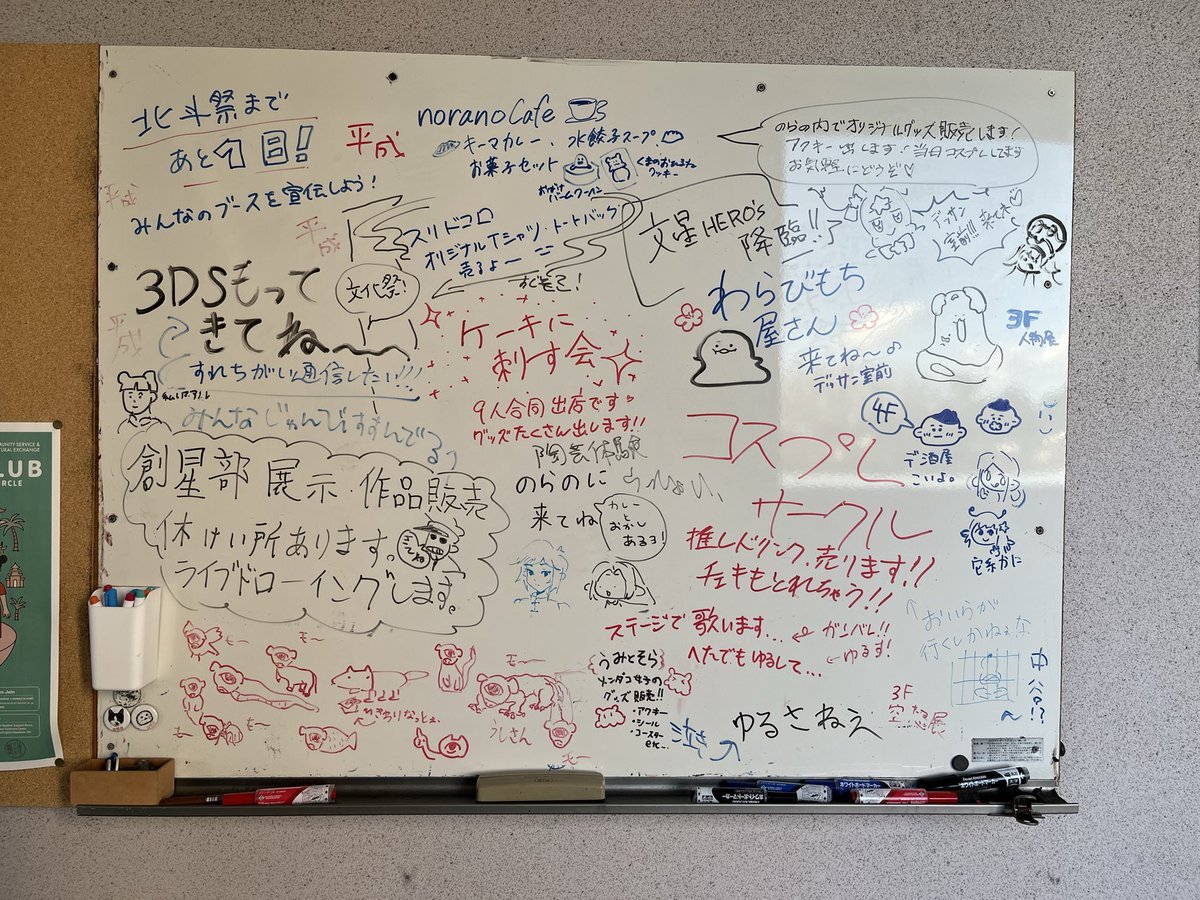 北斗祭まで
あと1日!
みんなのブースを宣伝しよう!
平成
平成
平成
平成
norano Cafe
キーマカレー、水餃子スープ
お菓子セット
おばけ
バームクーヘン
クッキー
のらの内でオリジナルグッズ販売します!
アクキー出します!当日コスプレしてます
お気軽にどうぞ♡
スリドコロ
オリジナルTシャツ・トートバッグ
売るよー
すぐそこ!
文星HERO's
降臨!!
デッサン
室前!!
来てネ♡
3DSもって
きてね〜
文化祭!
すれちがい通信したい!!!
みんなじゅんびすすんでる?
ケーキに
刺す会
9人合同出店です。
グッズたくさん出します!!
陶芸体験
わらびもち
屋さん
来てね〜♪
デッサン室前
3F
人物展
4F
デ酒屋
こいよ。
創星部 展示・作品販売
休けい所あります。
ライブドローイングします。
のらのに
来てね
カレー
と
おかし
あるヨ!
コスプレ
サークル
推しドリンク売ります!!
チェキもとれちゃう!!
ステージで歌います…
ガンバレ!!
へたでもゆるして…
←ゆるす!
おいらが
行くしかねぇな
うみとそら
メンダコ女子の
グッズ販売!!
・アクキー
・シール
・コースター
etc...
泣き
ゆるさねえ
3F
空想展
モ〜
モ〜
モ〜
モ〜
モ〜
モ〜
うしさん
UNITY SERVICE &
URAL EXCHANGE
LUB
IRCLE